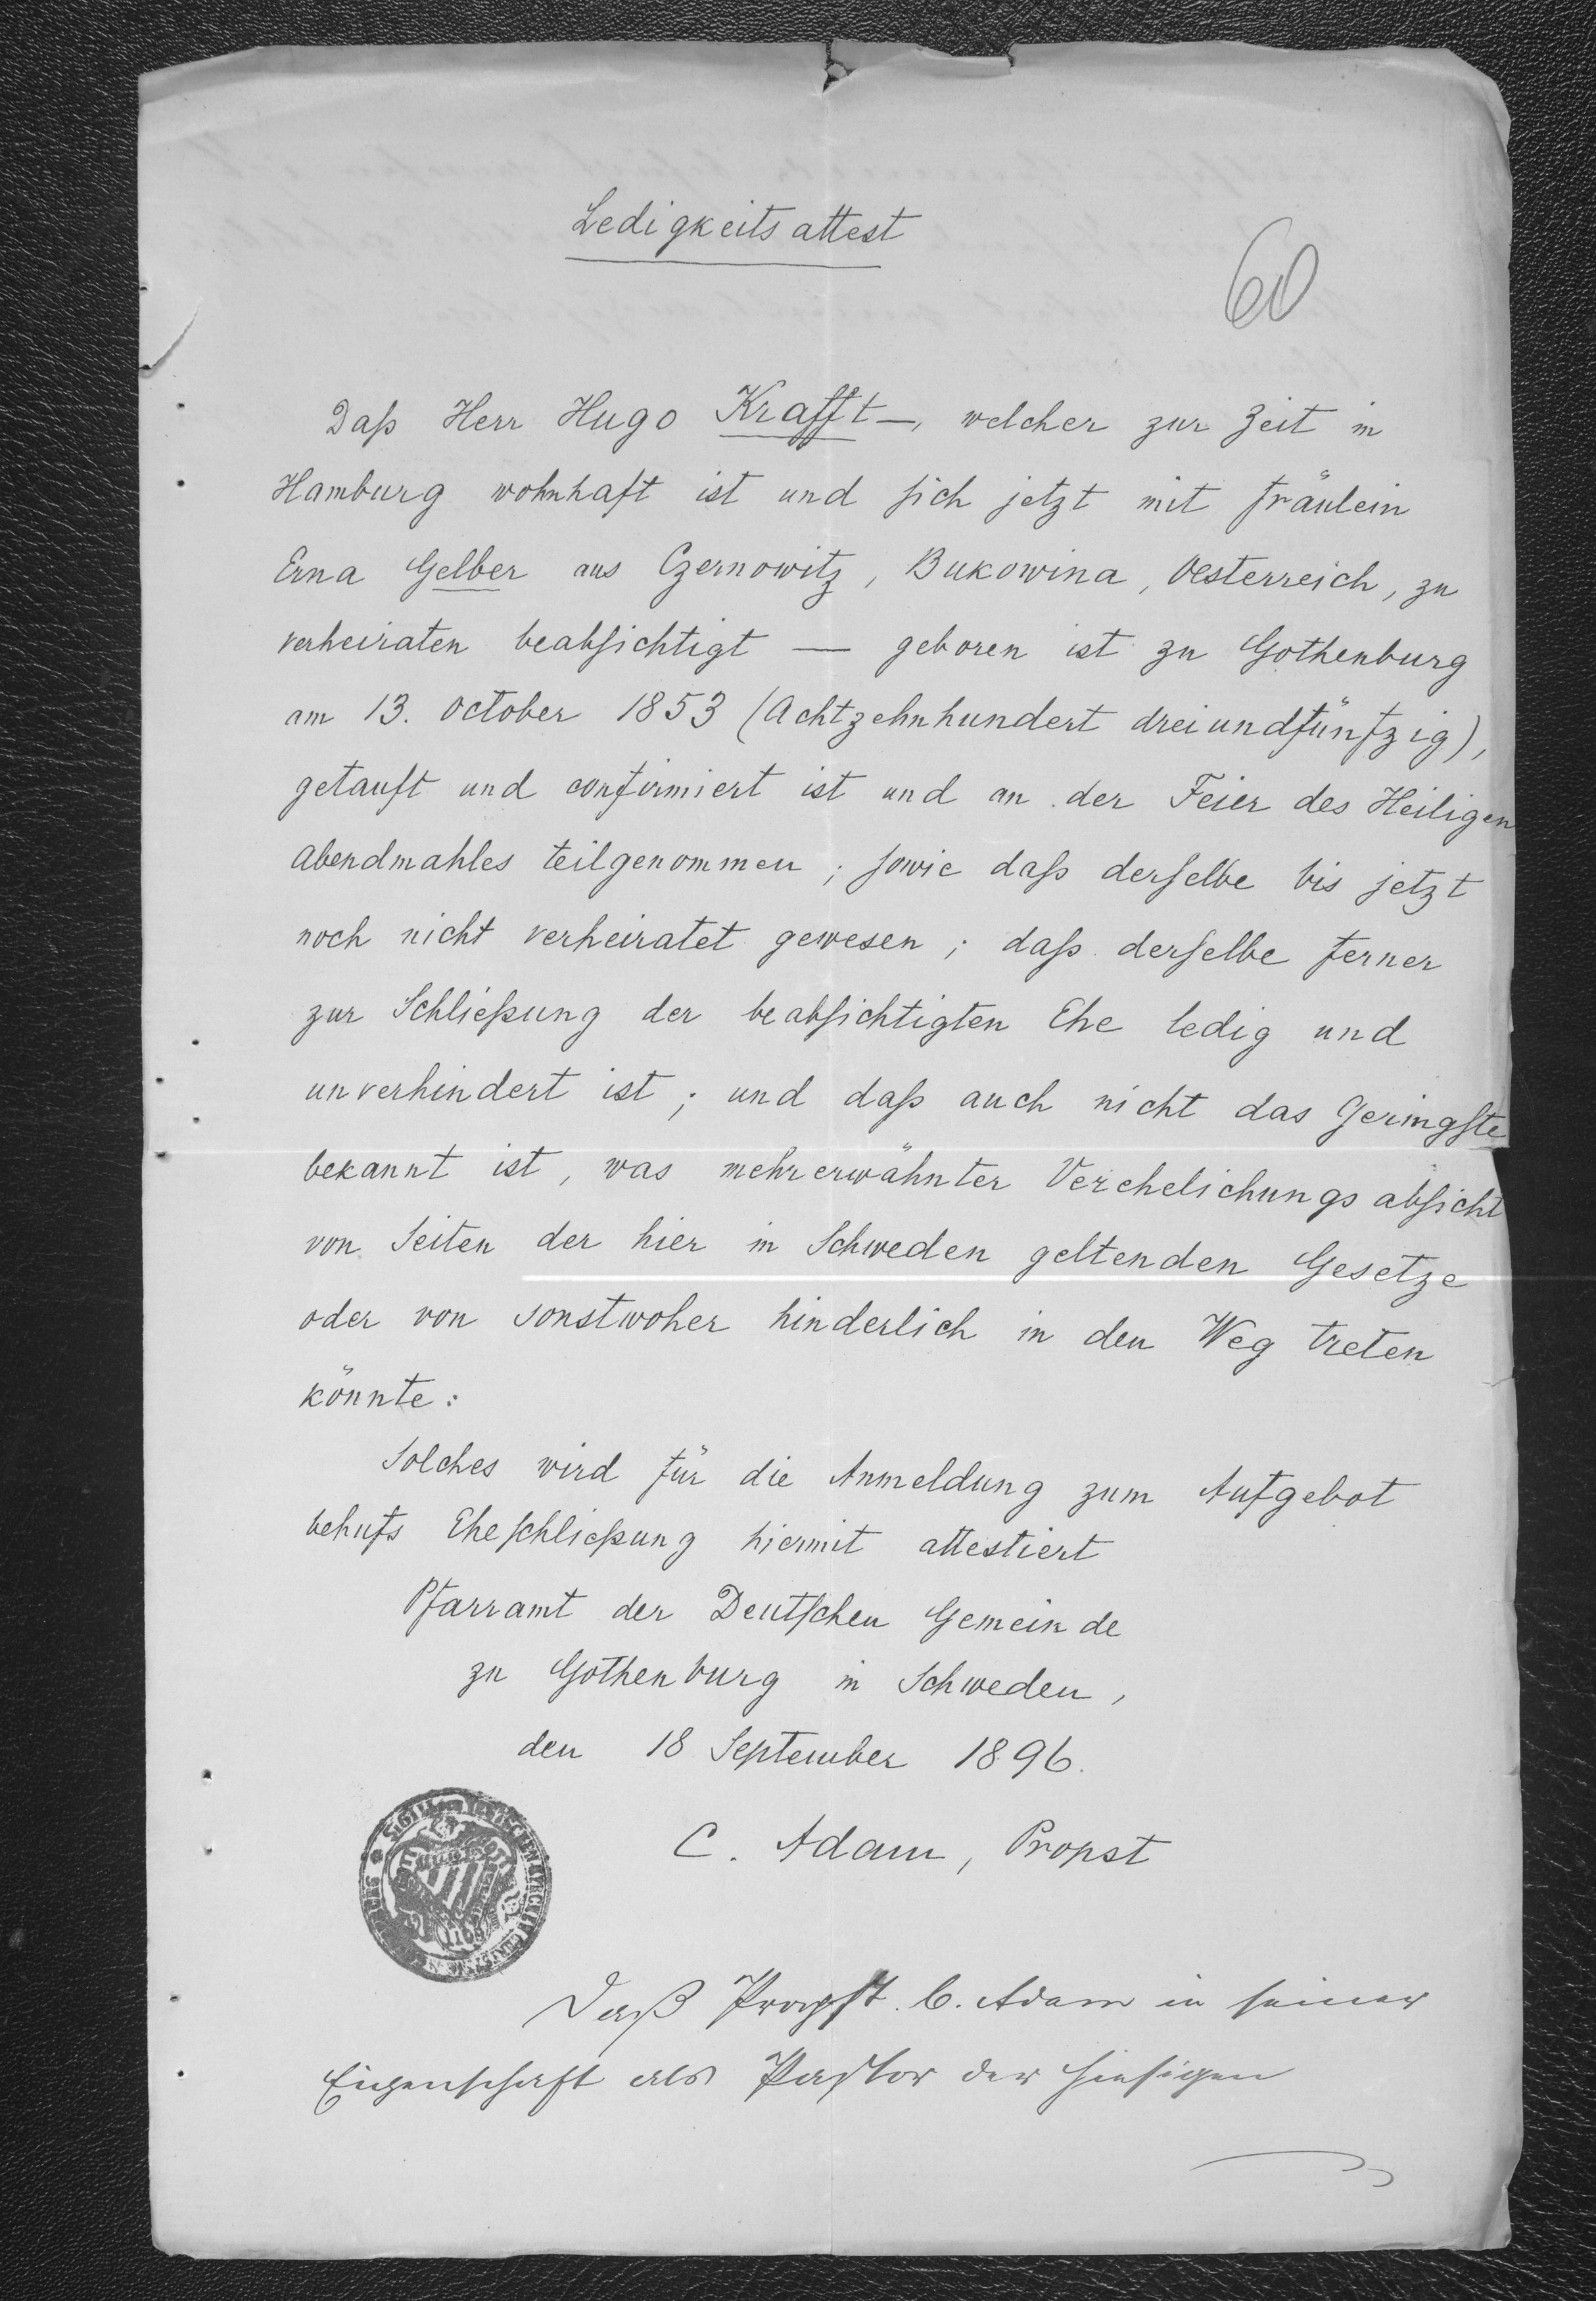 Ledigkeitsattest
60
Daß Herr Hugo Krafft —, welcher zur Zeit in
Hamburg wohnhaft ist und sich jetzt mit Fräulein
Erna Gelber aus Czernowitz, Bukowina, Oesterreich, zu
verheiraten beabsichtigt — geboren ist zu Gothenburg
am 13. October 1853 (Achtzehnhundert dreiundfünfzig),
getauft und confirmiert ist und an der Feier des Heiligen
Abendmahles teilgenommen; sowie daß derselbe bis jetzt
noch nicht verheiratet gewesen; daß derselbe ferner
zur Schließung der beabsichtigten Ehe ledig und
unverhindert ist; und daß auch nicht das Geringste
bekannt ist, was mehrerwähnter Verehelichungsabsicht
von Seiten der hier in Schweden geltenden Gesetze
oder von sonstwoher hinderlich in den Weg treten
könnte:
Solches wird für die Anmeldung zum Aufgebot
behufs Eheschließung hiermit attestiert
Pfarramt der Deutschen Gemeinde
zu Gothenburg in Schweden,
den 18 September 1896.
C. Adam, Propst
Daß Propst C. Adam in seiner
Eigenschaft als Pastor der hiesigen